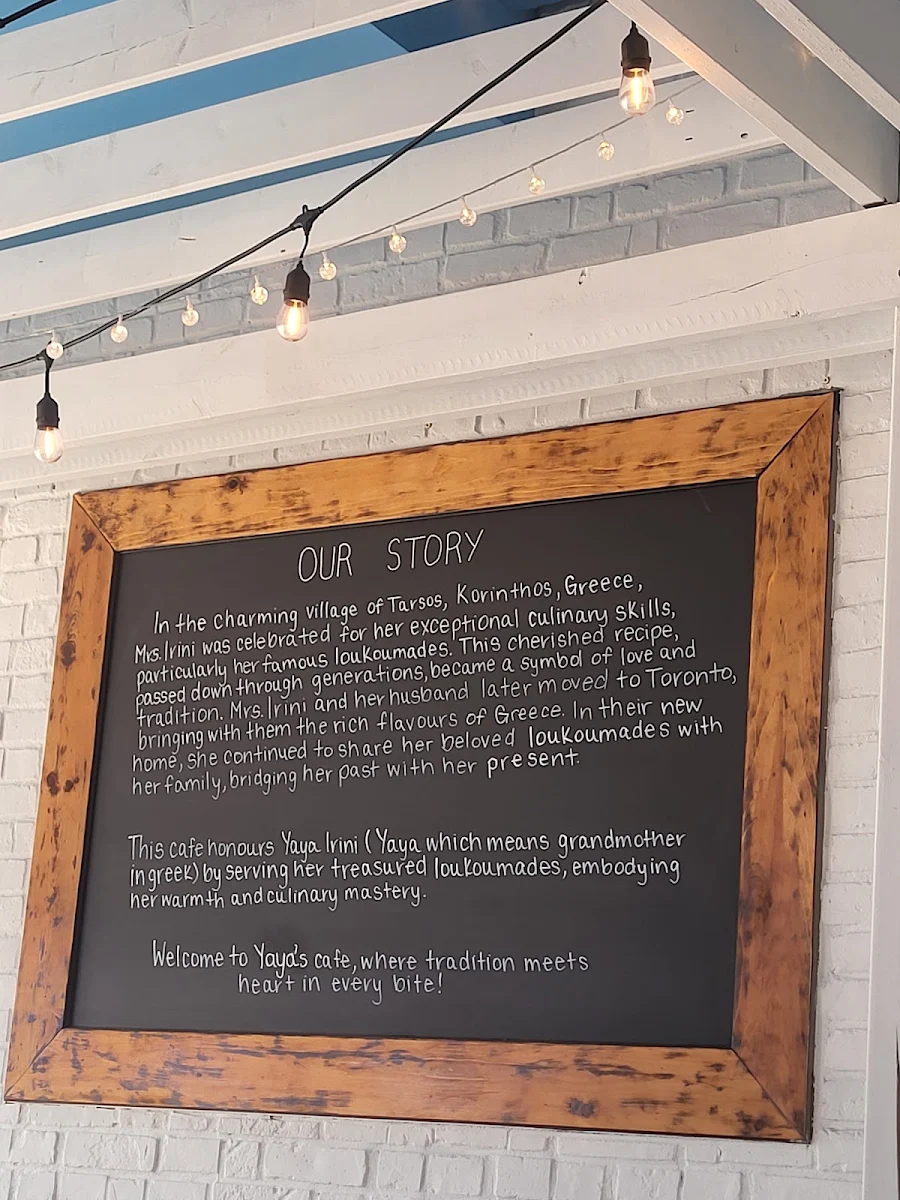 OUR STORY
In the charming village of Tarsos, Korinthos, Greece,
Mrs. Irini was celebrated for her exceptional culinary skills,
particularly her famous loukoumades. This cherished recipe,
passed down through generations, became a symbol of love and
tradition. Mrs. Irini and her husband later moved to Toronto,
bringing with them the rich flavours of Greece. In their new
home, she continued to share her beloved loukoumades with
her family, bridging her past with her present.
This cafe honours Yaya Irini (Yaya which means grandmother
in greek) by serving her treasured loukoumades, embodying
her warmth and culinary mastery.
Welcome to Yaya's cafe, where tradition meets
heart in every bite!